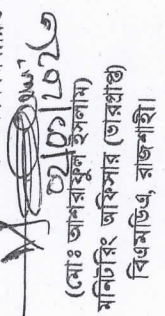 (মোঃ আশরাফুল ইসলাম)
মনিটরিং অফিসার (ভারপ্রাপ্ত)
বিএমডিএ, রাজশাহী।